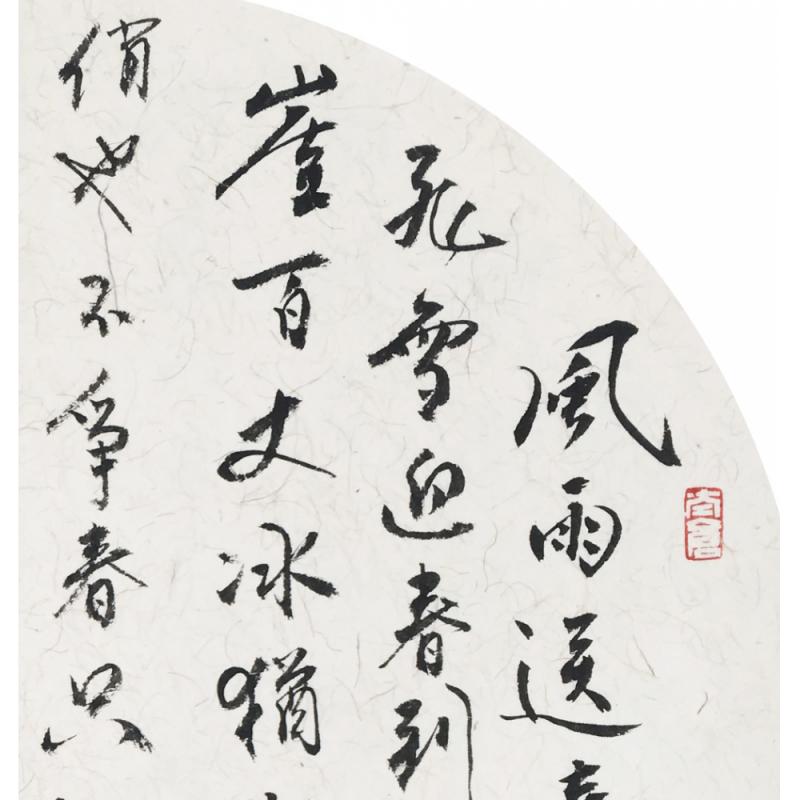 風雨送春
飛雪迎春到
崖百丈冰猶
俏也不爭春只